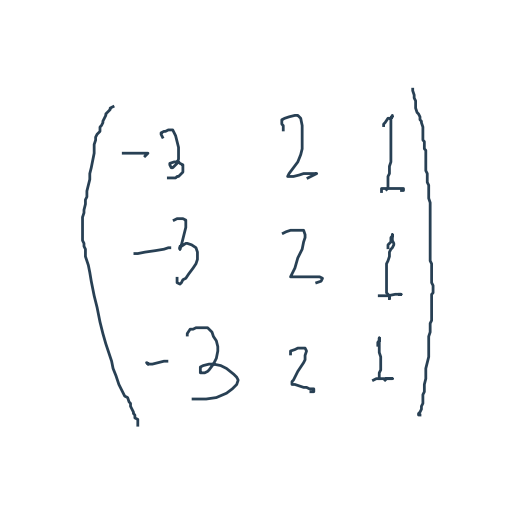 -3 2 1
-3 2 1
-3 2 1